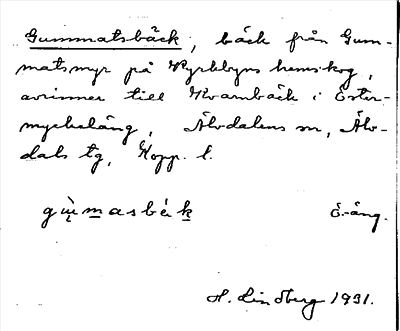 Gummatsbäck, bäck från Gum-
matsmyr på Kyrkbyns hemskog,
avrinner till Kvarnbäck i Öster-
myckeläng, Älvdalens sn, Älv-
dals tg, Kopp. l.
masbäk Ö.-äng.
H. Lindberg 1931.